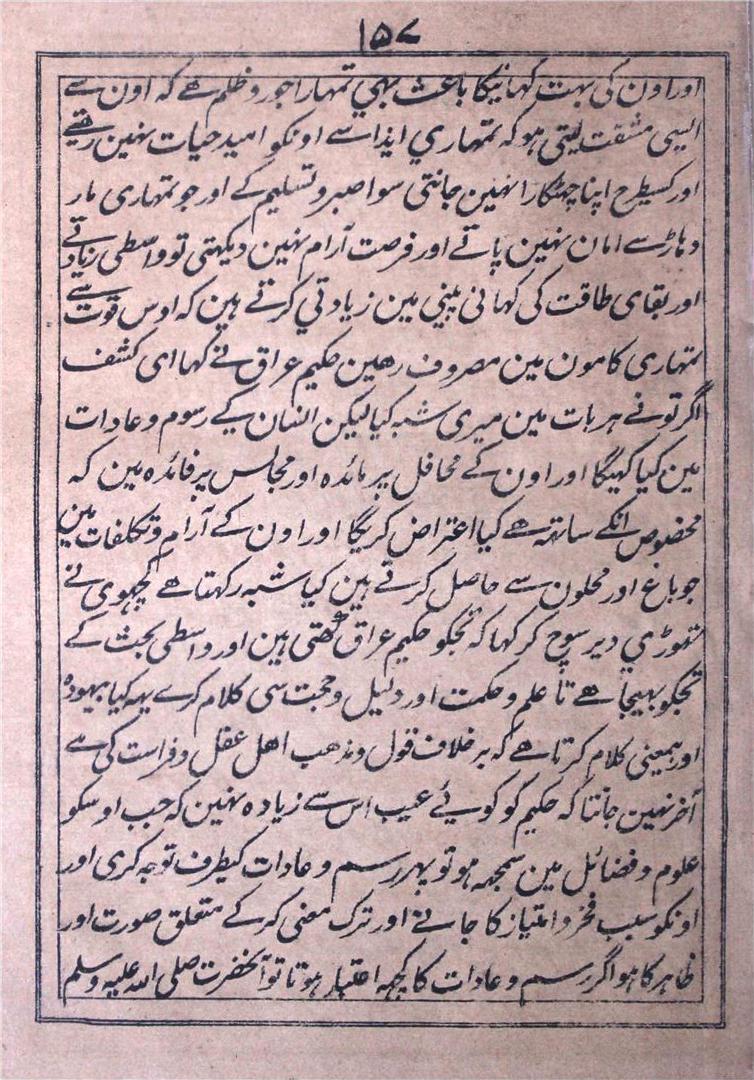 ۱۵۷
اور اون کی بہت کہانیکا باعث بہی تمہارا جور و ظلم ھے کہ اون سے
ایسی مشقت لیتی ہو کہ تمہاری ایذا سے اونکو امید حیات نہین رھتے
اور کسیطرح اپنا چھٹکارا نہین جانتی سوا صبر و تسلیم کے اور جو تمہاری مار
دہاڑ سے امان نہین پاتے اور فرصت آرام نہین دیکہتی تو واسطی زیادتے
اور بقای طاقت کی کہانی پینی مین زیادتی کرتے ہین کہ اوس قوت سے
تمہاری کامون مین مصروف رھین حکیم عراق نے کہا ای کشف
اگر تو نے ہر بات مین میری شبہ کیا لیکن انسان کے رسوم و عادات
مین کیا کہیگا اور اون کے محافل پر مائدہ اور مجالس پر فائدہ مین کہ
مخصوص انکے ساتہہ ھے کیا اعتراض کریگا اور اون کے آرام و تکلفات مین
جو باغ اور محلون سے حاصل کرتے ہین کیا شبہ رکہتا ھے کچہوی نے
تہوڑی دیر سوچ کر کہا کہ تجکو حکیم عراق کھتی ہین اور واسطی بحث کے
تجکو بہیجا ھے تا علم و حکمت اور دلیل و حجت سی کلام کرے یہہ کیا بیہودہ
اور بیمعنی کلام کرتا ھے کہ بر خلاف قول و مذھب اھل عقل و فراست کی ھے
آخر نہین جانتا کہ حکیم کو کویئے عیب اس سے زیادہ نہین کہ جب اوسکو
علوم و فضائل مین سمجہہ ہو تو پہر رسم و عادات کیطرف توجہ کری اور
اونکو سبب فخر و امتیاز کا جانے اور ترک معنی کرکے متعلق صورت اور
ظاہر کا ہو اگر رسم و عادات کا کچہہ اعتبار ہوتا تو آنحضرت صلی اللہ علیہ و سلم